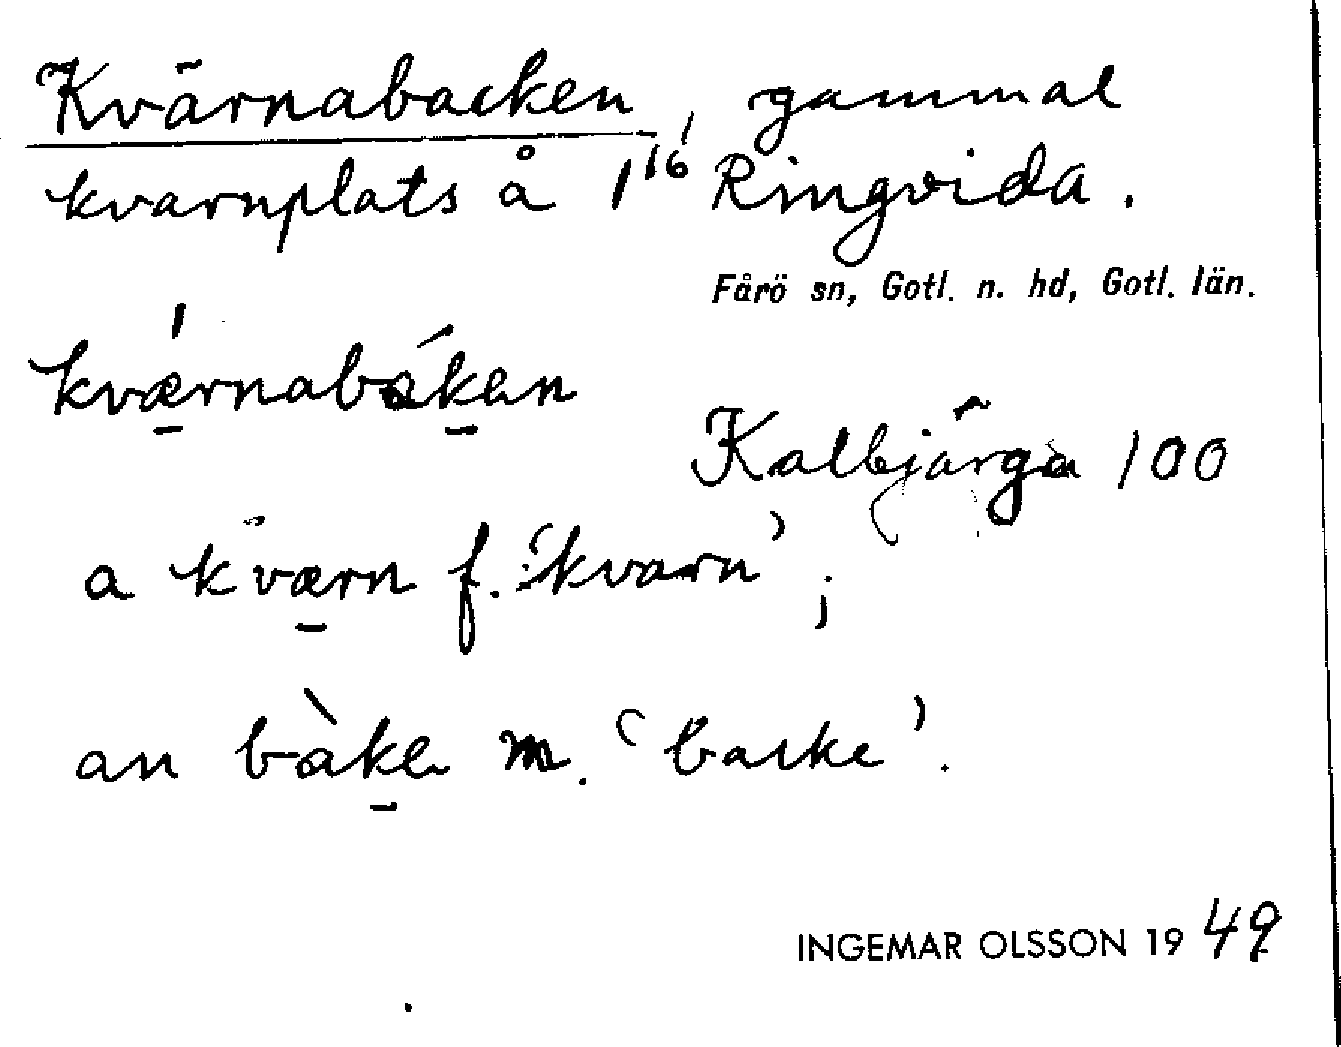 Kvärnabacken, gammal
kvarnplats å 1¹⁶ Ringvida.
Fårö sn, Gotl. n. hd, Gotl. län.
kvǽrnabáken
Kalbjärga 100
a kværn f. ‘kvarn’;
an bàke m. ‘backe’.
INGEMAR OLSSON 1949